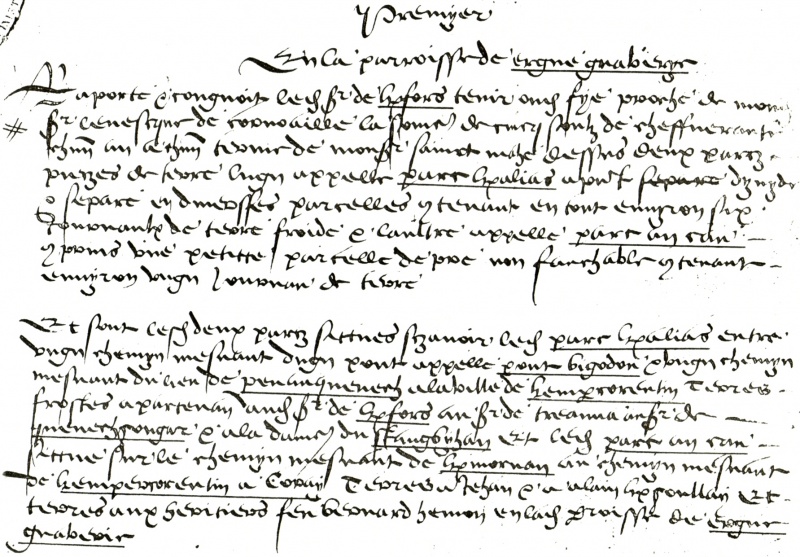 Premyer
En la parroisse de ergue gnaberyc
Raporte & congnoit led sr de kpfors tenir oud fye proche de mon
sr levesque de cornouaille la some de cincq soulz de cheffrente
chun an a chun terme de monsr sainct mahe dessus deux parcz
piezes de terre lugn appelle parc kpalias a put separe
separe en diversses parcelles 9tenant en tout environ six
journaulx de terre froide & laultre appelle parc an can
9prins une petitte parcelle de pre non fauchable 9tenant
environ ungn journau de terre
Et sont lesd deux parcz sittues scavoir led parc kpalias entre
ungn chemyn mesnant dugn pont appelle pont bigodou & ungn chemyn
mesnant du lieu de penanquenech a la ville de kempercorentin terres
frostes apartenant aud sr de kpfors au sr de treanna au sr de
quenechcongar & a la dame du stangbyhan Et led parc an can
sittue sur le chemyn mesnant de kpmorvan au chemyn mesnant
de kempercorentin a Coray Terres a Jehan & a alain kpgoullay Et
terres aux heritiers feu bernard hemon en lad proisse de ergue
gnaberic